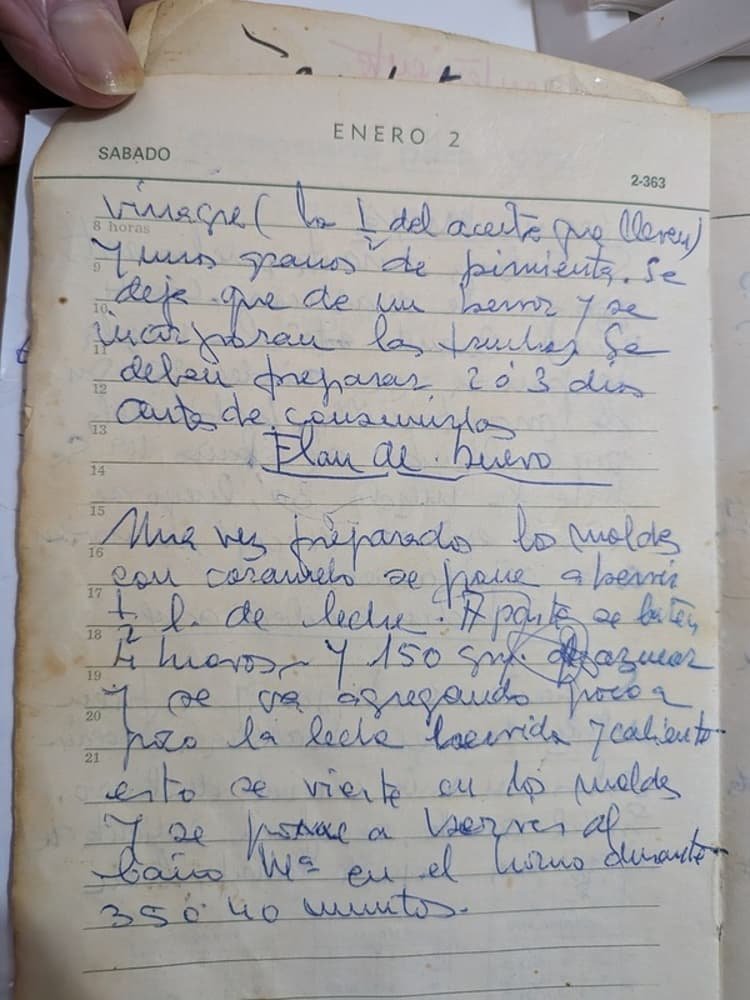 ENERO 2
SABADO
2-363
vinagre (la 1/2 del aceite que lleven)
8 horas
y unos granos de pimienta. Se
9
deje que de un hervir y se
10
incorporan las truchas. Se
11
deben preparar 2 ó 3 dias
12
antes de consumirlas
13
Flan de huevo
14
15
Una vez preparado los moldes
16
con caramelo se pone a hervir
17
1/2 l. de leche. A parte se baten
18
4 huevos y 150 grs. de azucar
19
y se va agregando poco a
20
poco la leche hervida y caliente
21
esto se vierte en los moldes
y se pone a hervir al
baño Mª en el horno durante
35 ó 40 minutos.